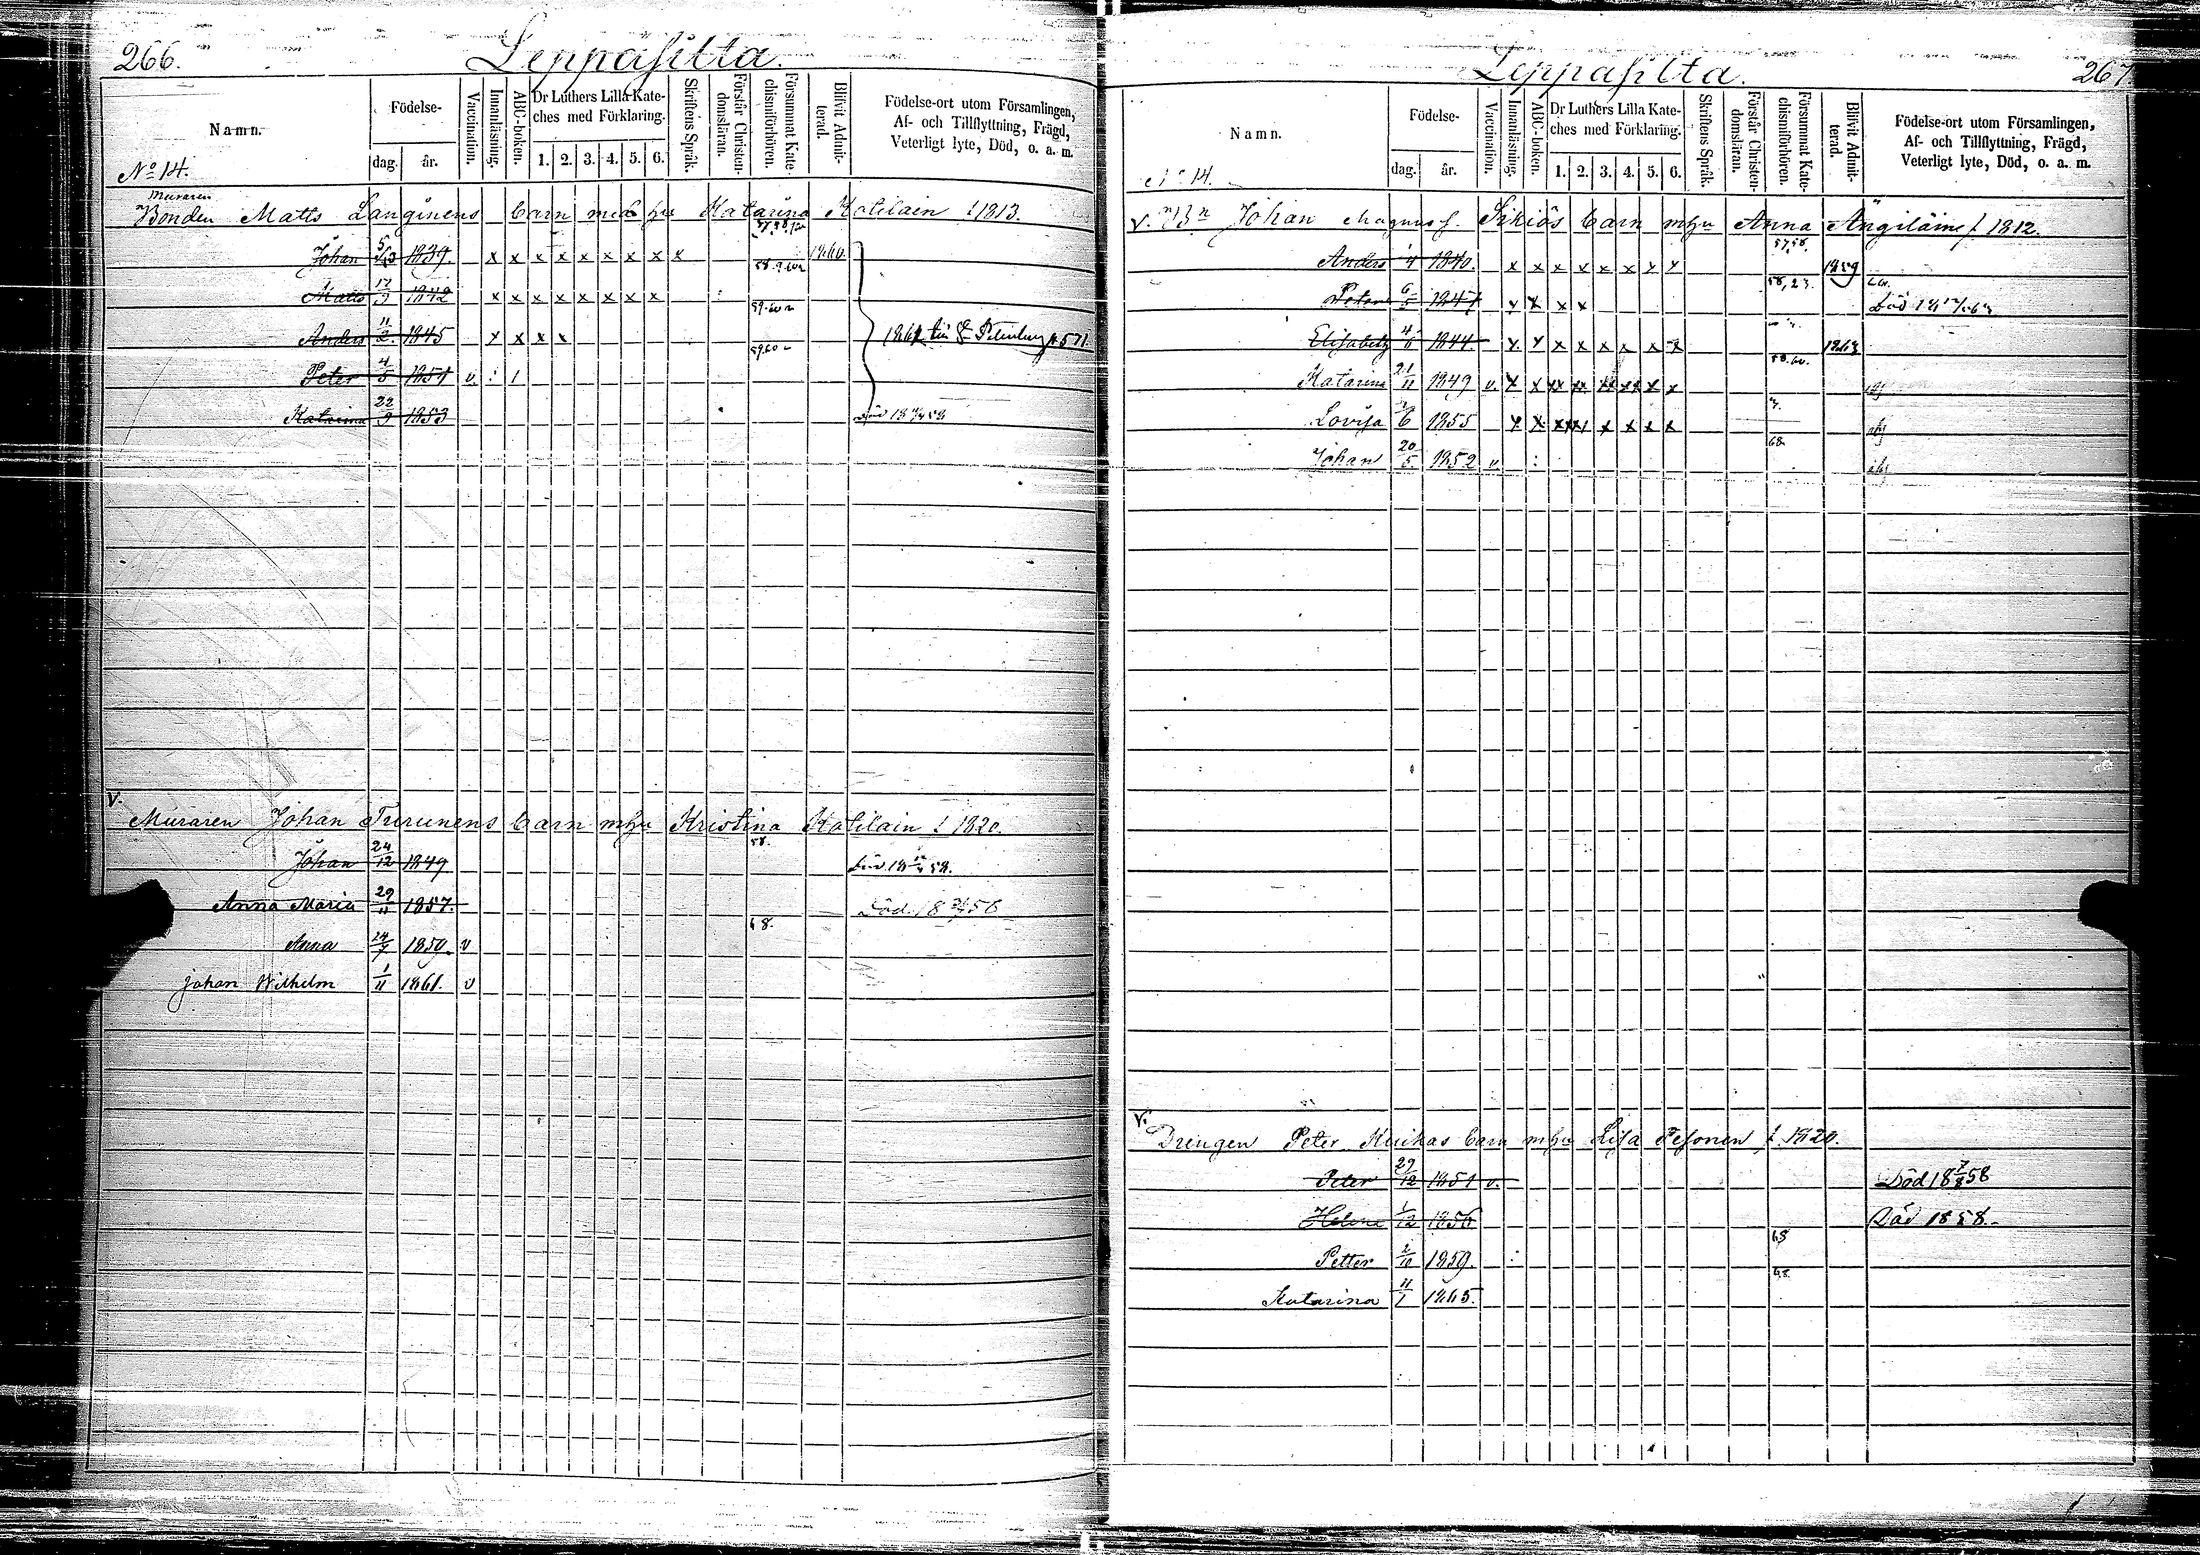 266.
Leppäsilta.
Namn.
Födelse-
dag.
år.
Vaccination.
Innanläsning.
ABC-boken.
Dr Luthers Lilla Kate-
ches med Förklaring.
1. 2. 3. 4. 5. 6.
Skriftens Språk.
Förstår Christen-
domsläran.
Försummat Kate-
chismiförhören.
Blifvit Admit-
terad.
Födelse-ort utom Församlingen,
Af- och Tillflyttning, Frägd,
Veterligt lyte, Död, o. a. m.
No 14.
Muraren
Bonden Matts Langinens barn med hu Katarina Kotilain f 1813.
Johan 5/10 1839. x x x x x x x x x 1860.
Matts 17/9 1842 x x x x x x x x
Anders 11/2 1845 x x x x 1861 till St Petersburg p 571.
Peter 4/5 1851 v : 1
Katarina 22/9 1853 Död
v.
Muraren Johan Turunens barn mhu Kristina Kotilain f 1820.
58.
Johan 24/12 1849 Död
Anna Maria 29/11 1857. Död.
68.
Anna 24/7 1859. v
Johan Wilhelm 1/11 1861. v
Leppäsilta.
267.
Namn.
Födelse-
dag.
år.
Vaccination.
Innanläsning.
ABC-boken.
Dr Luthers Lilla Kate-
ches med Förklaring.
1. 2. 3. 4. 5. 6.
Skriftens Språk.
Förstår Christen-
domsläran.
Försummat Kate-
chismiförhören.
Blifvit Admit-
terad.
Födelse-ort utom Församlingen,
Af- och Tillflyttning, Frägd,
Veterligt lyte, Död, o. a. m.
No 14.
v. Bn Johan Magnuss. Sikiös barn mhu Anna Ängiläin f 1812.
57,58.
Anders 1/4 1840. x x x x x x x x 1859
6/5 1847 x x x x Död
Elisabeth 4/6 1844. x x x x x x x x 1863
58.60.
Katarina 21/11 1849 v. x x xx xx xx xx x x
Lovisa 6 1855 x x x x x x x x
68
Johan 20/5 1852 v. :
v.
Drengen Peter Kuikas barn mhu Lisa Tesonen f. 1820.
Peter 29/12 1851 v. Död 18 7/8 58
Helena 1/12 1856 Död 1858.
68
Petter 2/10 1859. :
68
Katarina 11/1 1865.